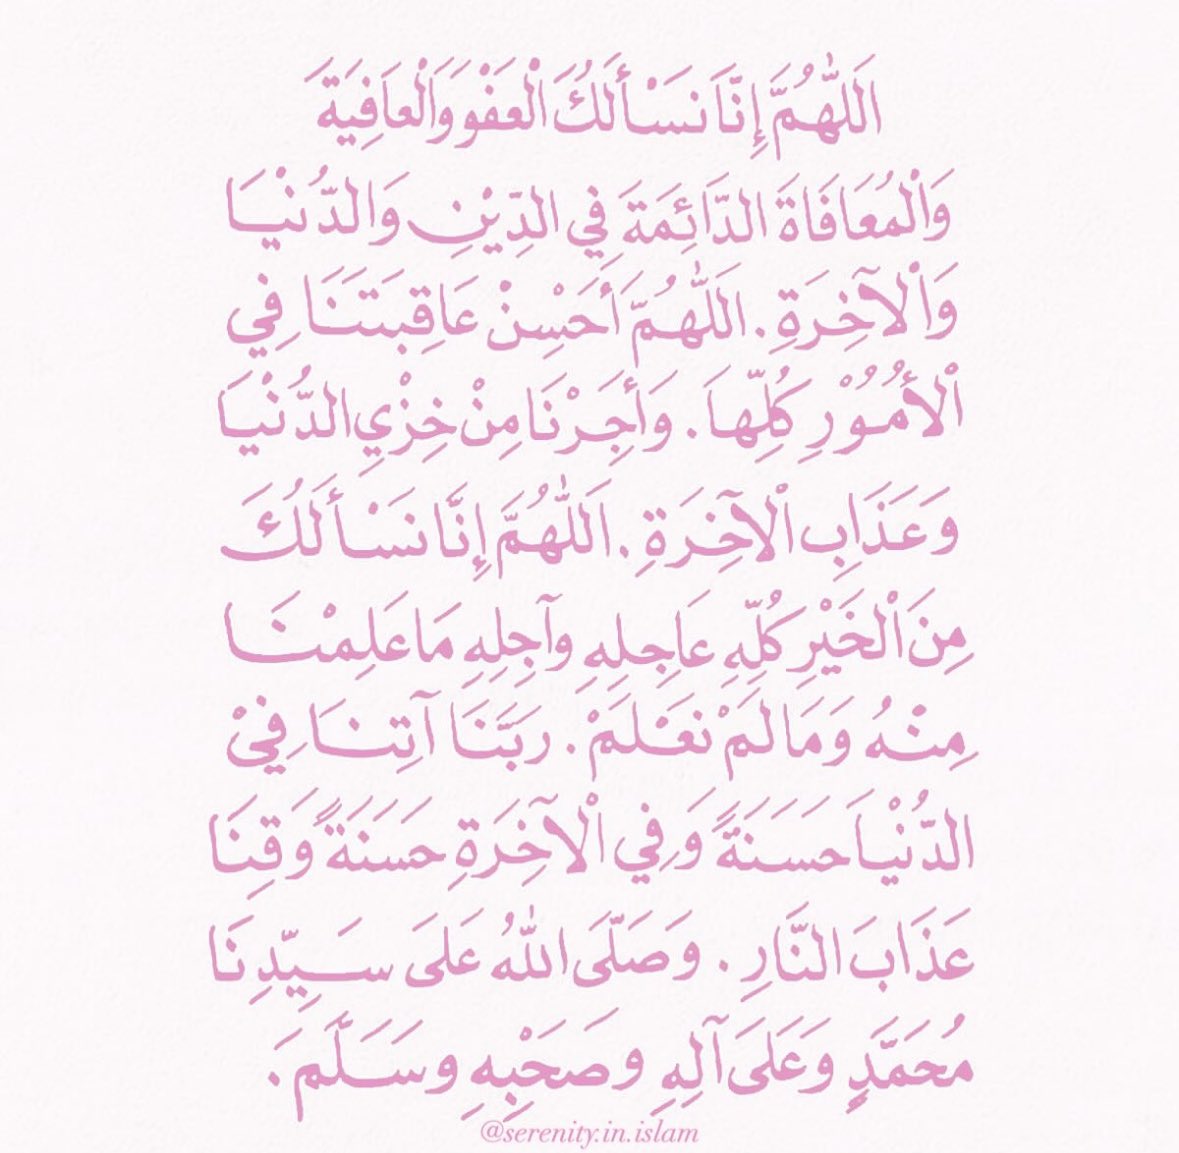 اَللّٰهُمَّ إِنَّا نَسْأَلُكَ الْعَفْوَ وَالْعَافِيَةَ
وَالْمُعَافَاةَ الدَّائِمَةَ فِي الدِّيْنِ وَالدُّنْيَا
وَالْآخِرَةِ. اَللّٰهُمَّ أَحْسِنْ عَاقِبَتَنَا فِي
الْأُمُوْرِ كُلِّهَا. وَأَجِرْنَا مِنْ خِزْيِ الدُّنْيَا
وَعَذَابِ الْآخِرَةِ. اَللّٰهُمَّ إِنَّا نَسْأَلُكَ
مِنَ الْخَيْرِ كُلِّهِ عَاجِلِهِ وَآجِلِهِ مَا عَلِمْنَا
مِنْهُ وَمَا لَمْ نَعْلَمْ. رَبَّنَا آتِنَا فِيْ
الدُّنْيَا حَسَنَةً وَفِي الْآخِرَةِ حَسَنَةً وَقِنَا
عَذَابَ النَّارِ. وَصَلَّى اللّٰهُ عَلَى سَيِّدِنَا
مُحَمَّدٍ وَعَلَى آلِهِ وَصَحْبِهِ وَسَلَّمَ.
@serenity.in.islam